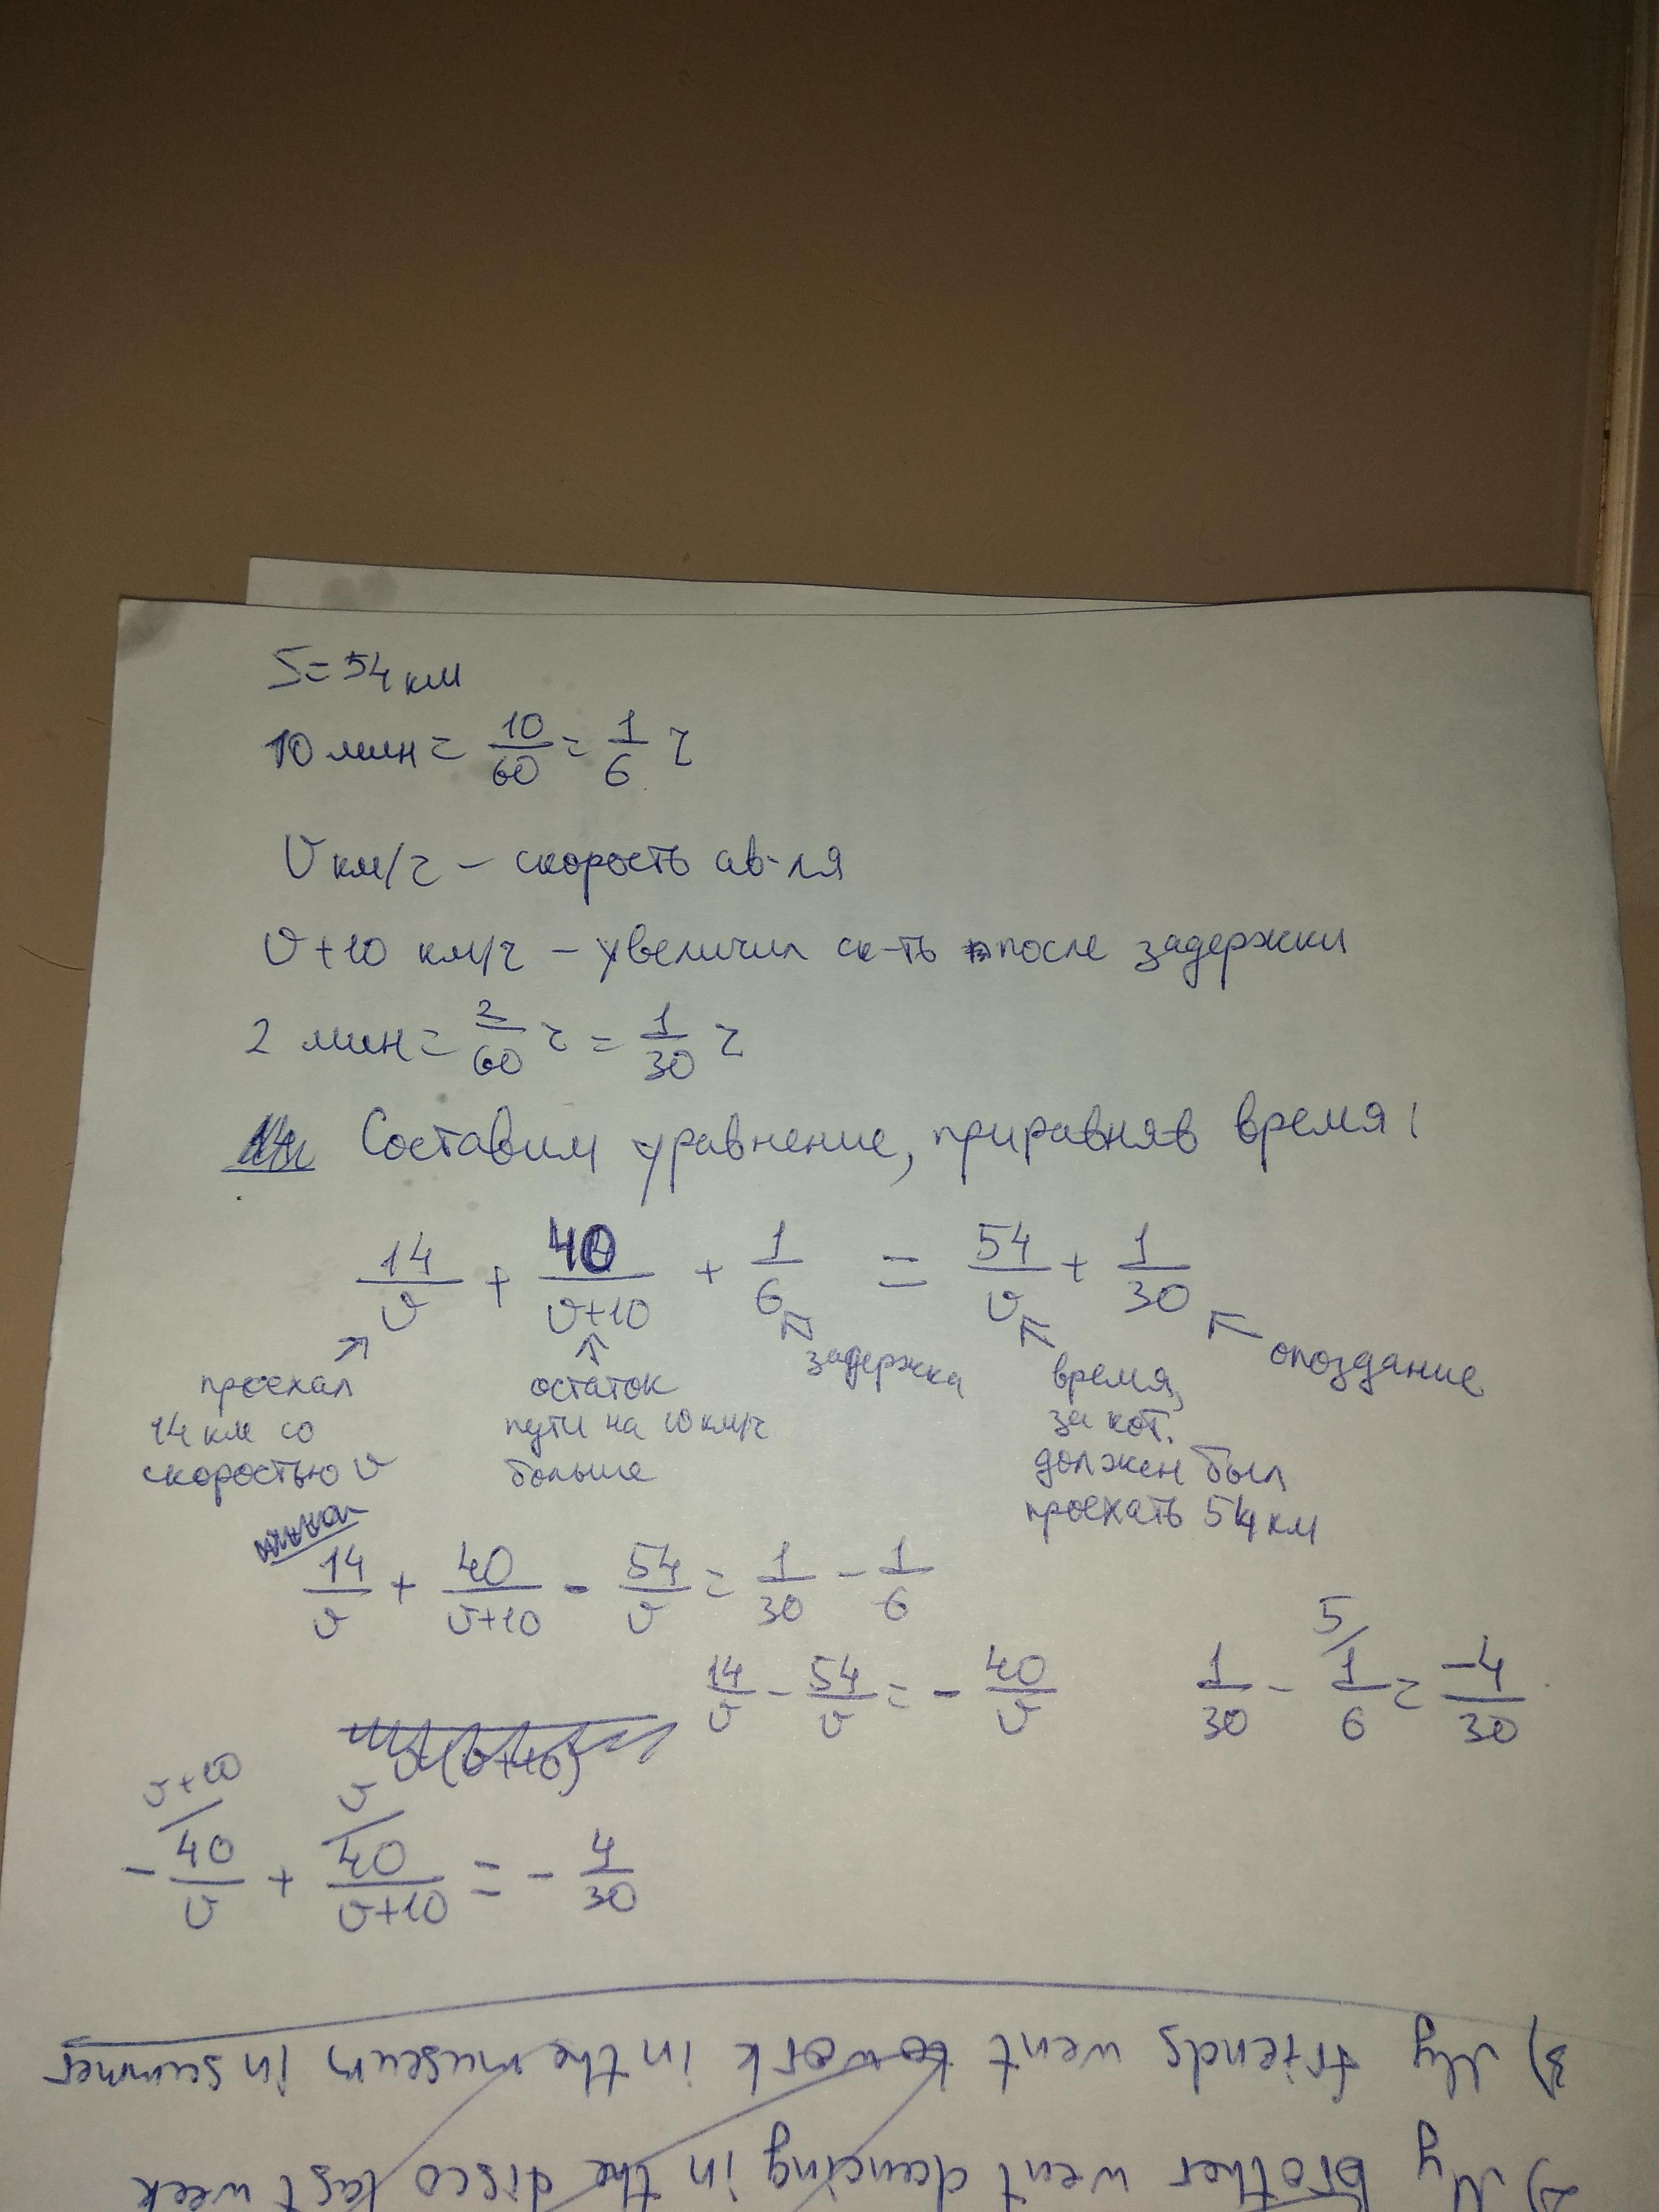 S = 54 км
10 мин = 10/60 = 1/6 ч
V км/ч – скорость ав-ля
v+10 км/ч – увеличил ск-ть после задержки
2 мин = 2/60 ч = 1/30 ч
Составим уравнение, приравняв время:
14/v + 40/(v+10) + 1/6 = 54/v + 1/30
проехал 14 км со скоростью v
остаток пути на 10 км/ч больше
задержка
время, за кот. должен был проехать 54 км
опоздание
14/v + 40/(v+10) - 54/v = 1/30 - 1/6
14/v - 54/v = - 40/v
1/30 - 5/ 1/6 = -4/30
v+10/ v/
- 40/v + 40/(v+10) = - 4/30
3) My friends went to work in the museum in summer
2) My brother went dancing in the disco last week